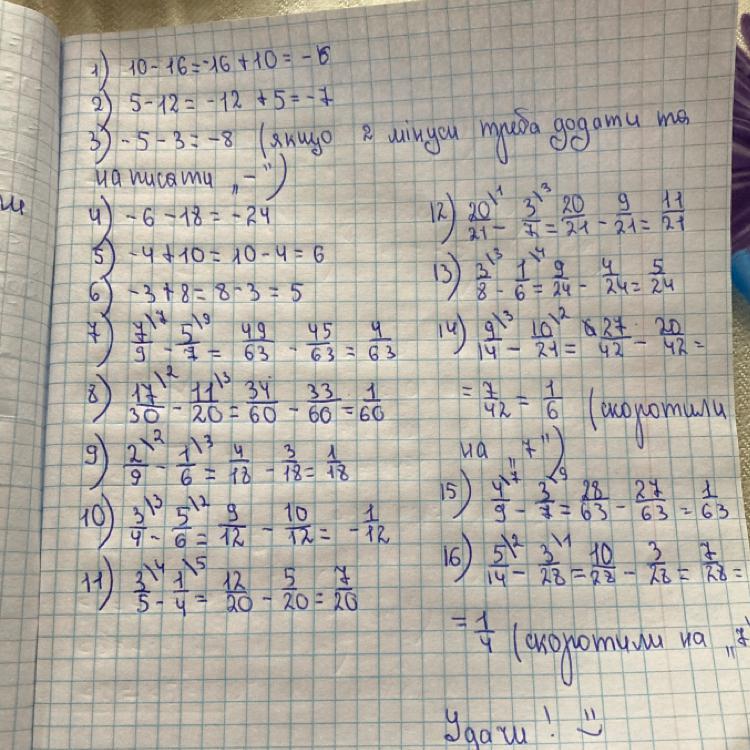 1) 10 - 16 = -16 + 10 = -6
2) 5 - 12 = -12 + 5 = -7
3) -5 - 3 = -8 (якщо 2 мінуси треба додати та
написати „-")
4) -6 - 18 = -24
5) -4 + 10 = 10 - 4 = 6
6) -3 + 8 = 8 - 3 = 5
7) 7/9\7 - 5/7\9 = 49/63 - 45/63 = 4/63
8) 17/30\2 - 11/20\3 = 34/60 - 33/60 = 1/60
9) 2/9\2 - 1/6\3 = 4/18 - 3/18 = 1/18
10) 3/4\3 - 5/6\2 = 9/12 - 10/12 = -1/12
11) 3/5\4 - 1/4\5 = 12/20 - 5/20 = 7/20
12) 20/21\1 - 3/7\3 = 20/21 - 9/21 = 11/21
13) 3/8\3 - 1/6\4 = 9/24 - 4/24 = 5/24
14) 9/14\3 - 10/21\2 = 27/42 - 20/42 =
= 7/42 = 1/6 (скоротили
на „7")
15) 4/9\7 - 3/7\9 = 28/63 - 27/63 = 1/63
16) 5/14\2 - 3/28\1 = 10/28 - 3/28 = 7/28 =
= 1/4 (скоротили на „7"
Удачи! :)